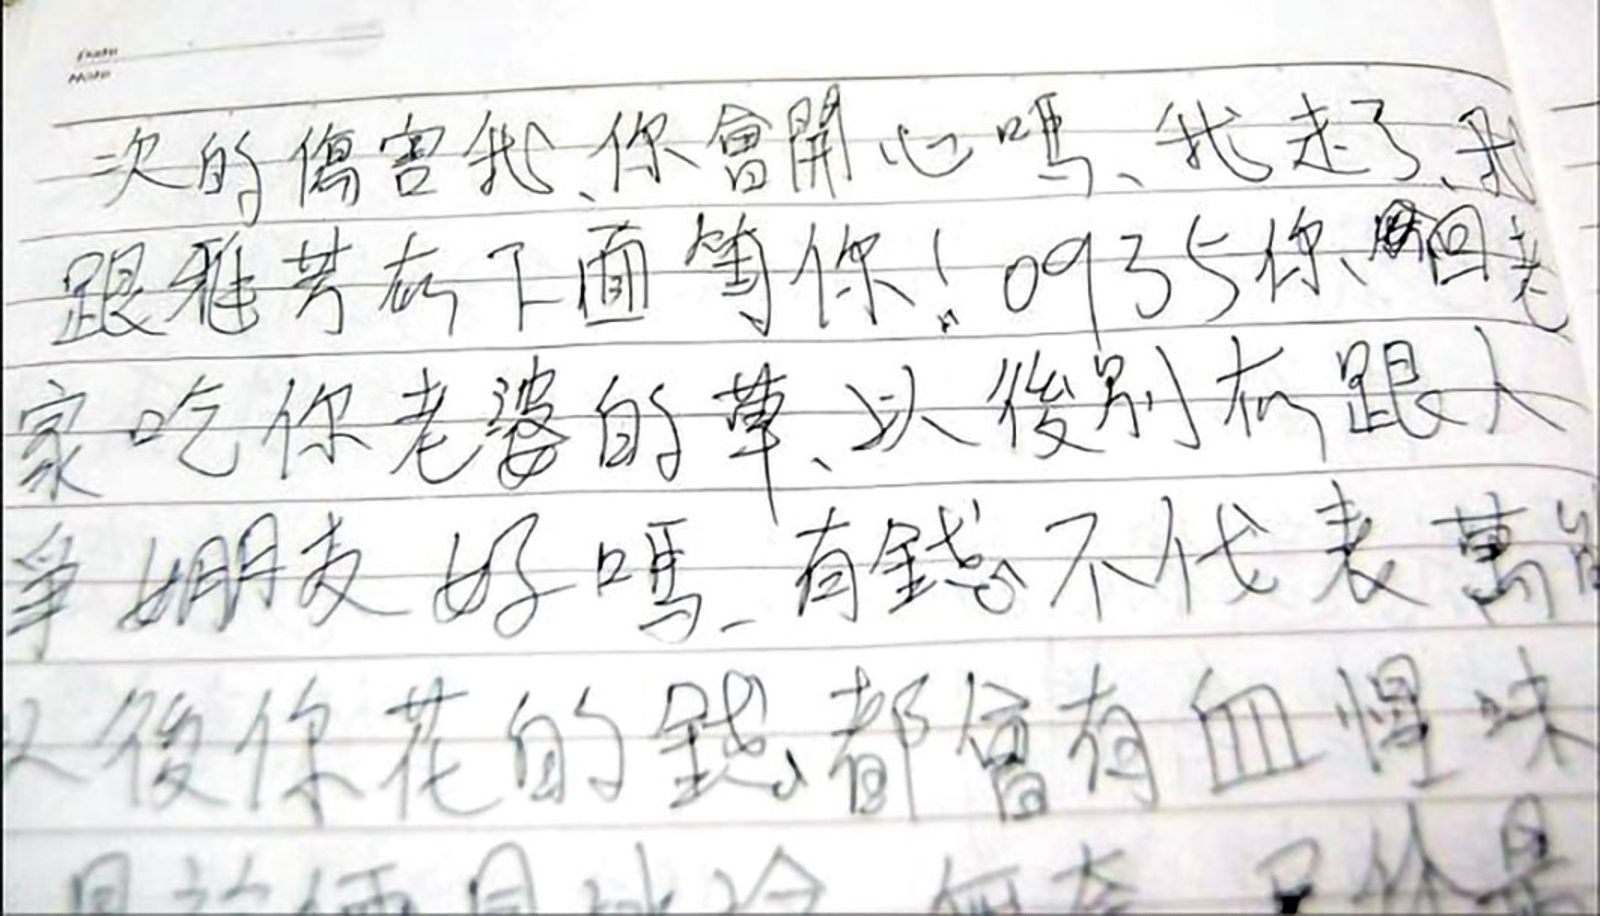 次的傷害我、你會開心嗎、我走了、我
跟雅芳在下面等你！0935你、回老
家吃你老婆的草、以後別在跟人
爭女朋友好嗎、有錢不代表萬能
以後你花的錢、都會有血惺味